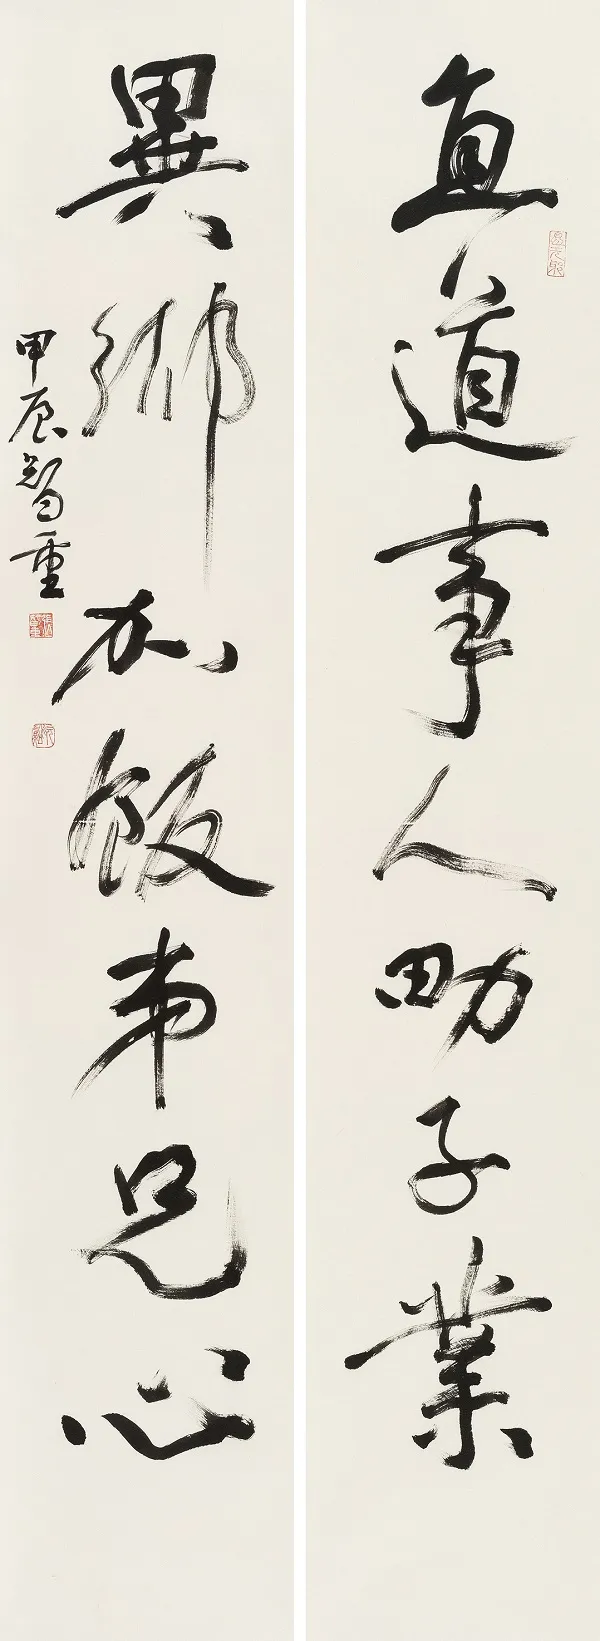 直道事人男子業
異鄉加飯弟兄心
甲辰智重